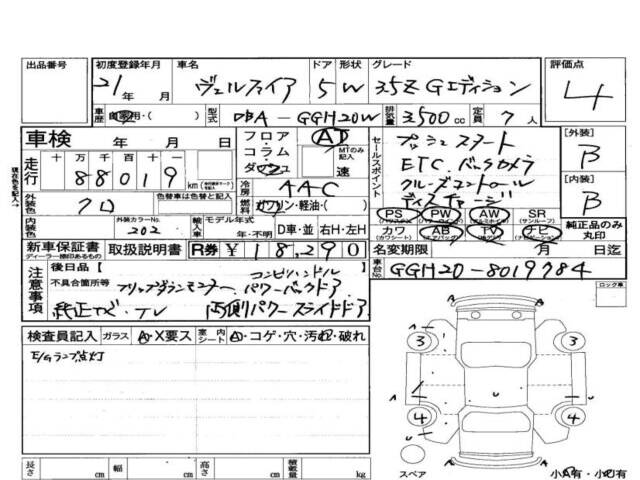 出品番号
初度登録年月
21年 月
車名
ヴェルファイア
ドア
5
形状
W
グレード
3.5Z Gエディション
評価点
4
車歴
自家用・( )
型式
DBA-GGH20W
排気量
3500cc
定員
7人
車検 年 月 日
走行
十 万 千 百 十 一
88019
km
フロア AT
コラム
ダッシュ
MTのみ記入
速
セールスポイント
プッシュスタート
ETC.バックカメラ
クルーズコントロール
ディスチャージ
[外装]
B
[内装]
B
現在色を記入→
外装色
クロ
色替車は色替と記入
冷房
AAC
燃料
ガソリン・軽油・( )
内装色
外装カラーNo.
202
輸入車
モデル年式
年・不明
D車・並 右H・左H
PS PW AW SR
(サンルーフ)
カワ AB TV ナビ
(カワシート)
純正品のみ丸印
新車保証書
ディーラー捺印あるもの
取扱説明書
R券 ¥18,290
名変期限 月 日迄
車台No.
GGH20-8019784
注意事項
後日品[ ]
不具合箇所等
コンビハンドル
フリップダウンモニター.パワーバックドア
純正ナビ.TV 両側パワースライドドア
ロック車
検査員記入
ガラス
A・X要ス
室内シート
A・コゲ・穴・汚れ・破れ
E/Gランプ点灯
A
A
3
3
A
U
4
4
U
A
A
スペア
小A有・小U有
長さ cm
幅 cm
高さ cm
積載量 kg